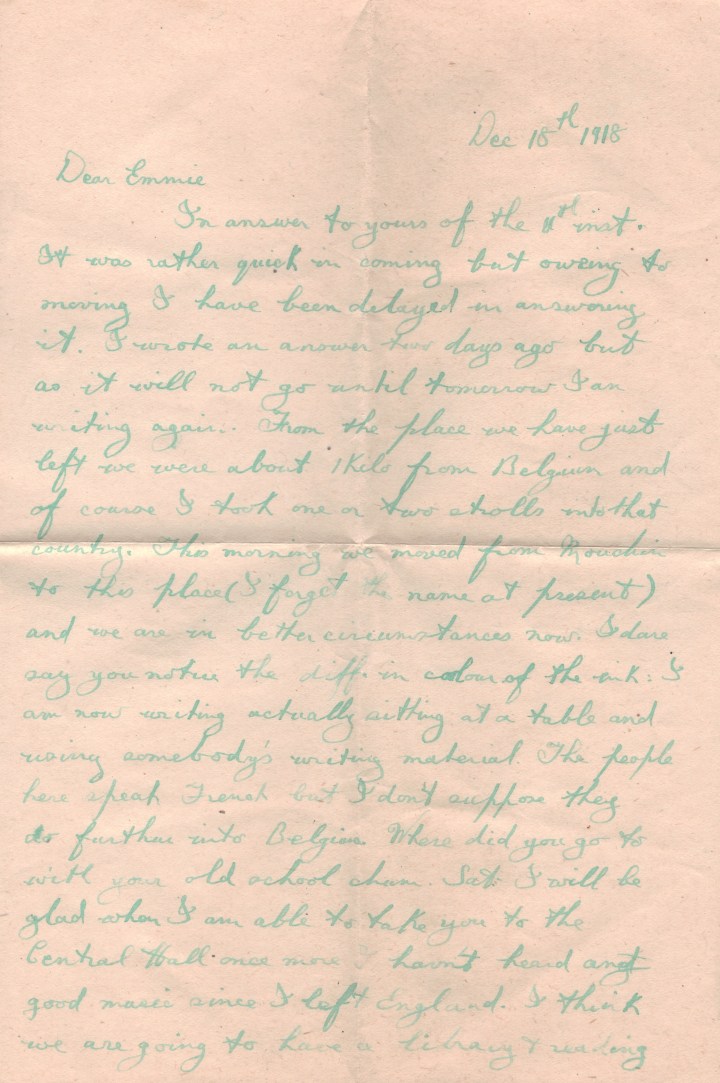 Dec 18th 1918
Dear Emmie
In answer to yours of the 11th inst.
It was rather quick in coming but oweing to
moving I have been delayed in answering
it. I wrote an answer two days ago but
as it will not go until tomorrow I am
writing again. From the place we have just
left we were about 1 Kilo from Belgium and
of course I took one or two strolls into that
country. This morning we moved from Mouchin
to this place (I forget the name at present)
and we are in better circumstances now. I dare
say you notice the diff. in colour of the ink: I
am now writing actually sitting at a table and
using somebody's writing material. The people
here speak French but I don't suppose they
do further into Belgium. Where did you go to
with your old school chum. Sat. I will be
glad when I am able to take you to the
Central Hall once more I havn't heard any
good music since I left England. I think
we are going to have a library & reading